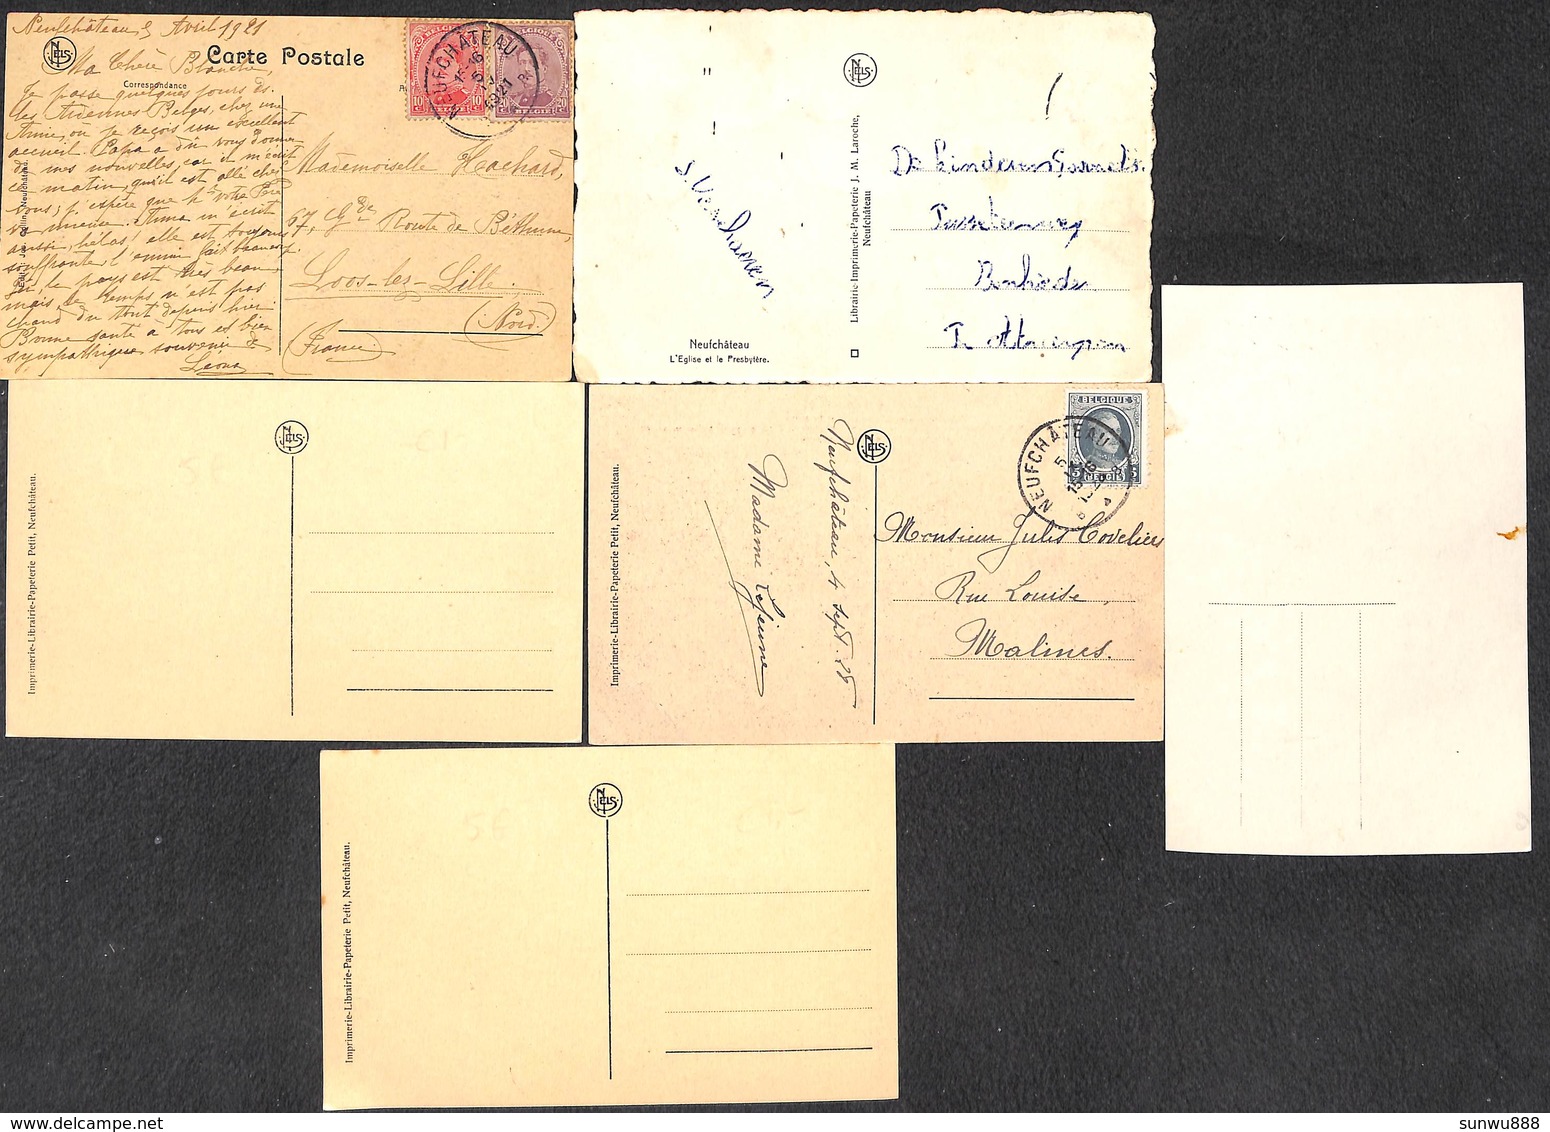 Neufchâteau 3 Avril 1921
NELS
Carte Postale
Correspondance
Ma Chère Blanche,
Je passe quelques jours ds.
les Ardennes Belges, chez une
Amie, où je reçois un excellent
accueil. Papa a dû vous donner
de mes nouvelles, car il m'écrit
ce matin, qu'il est allé chez
vous; j'espère que votre Père
va mieux. Anna m'écrit
aussi, hélas! elle est toujours
souffrante
le pays est très beau
mais le temps n'est pas
chaud du tout depuis hier
Bonne santé à tous et bien
sympathique souvenir de
Léona
Neufchâteau.
Mademoiselle Hachard,
67, Gde Route de Béthune,
Loos-lez-Lille
(Nord)
(France)
NEUFCHÂTEAU
1921
BELGIË
10 10
20 20
NELS
Librairie-Imprimerie-Papeterie J. M. Laroche,
Neufchâteau
Neufchâteau
L'Eglise et le Presbytère.
De Kinderen
Bonheiden
NELS
Imprimerie-Librairie-Papeterie Petit, Neufchâteau.
NELS
Imprimerie-Librairie-Papeterie Petit, Neufchâteau.
Neufchâteau, 4 Sept. 28
Madame Lejeune
BELGIQUE
BELGIË
NEUFCHÂTEAU
Monsieur Jules Coveliers
Rue Louise,
Malines.
NELS
Imprimerie-Librairie-Papeterie Petit, Neufchâteau.
5€
sunwu888